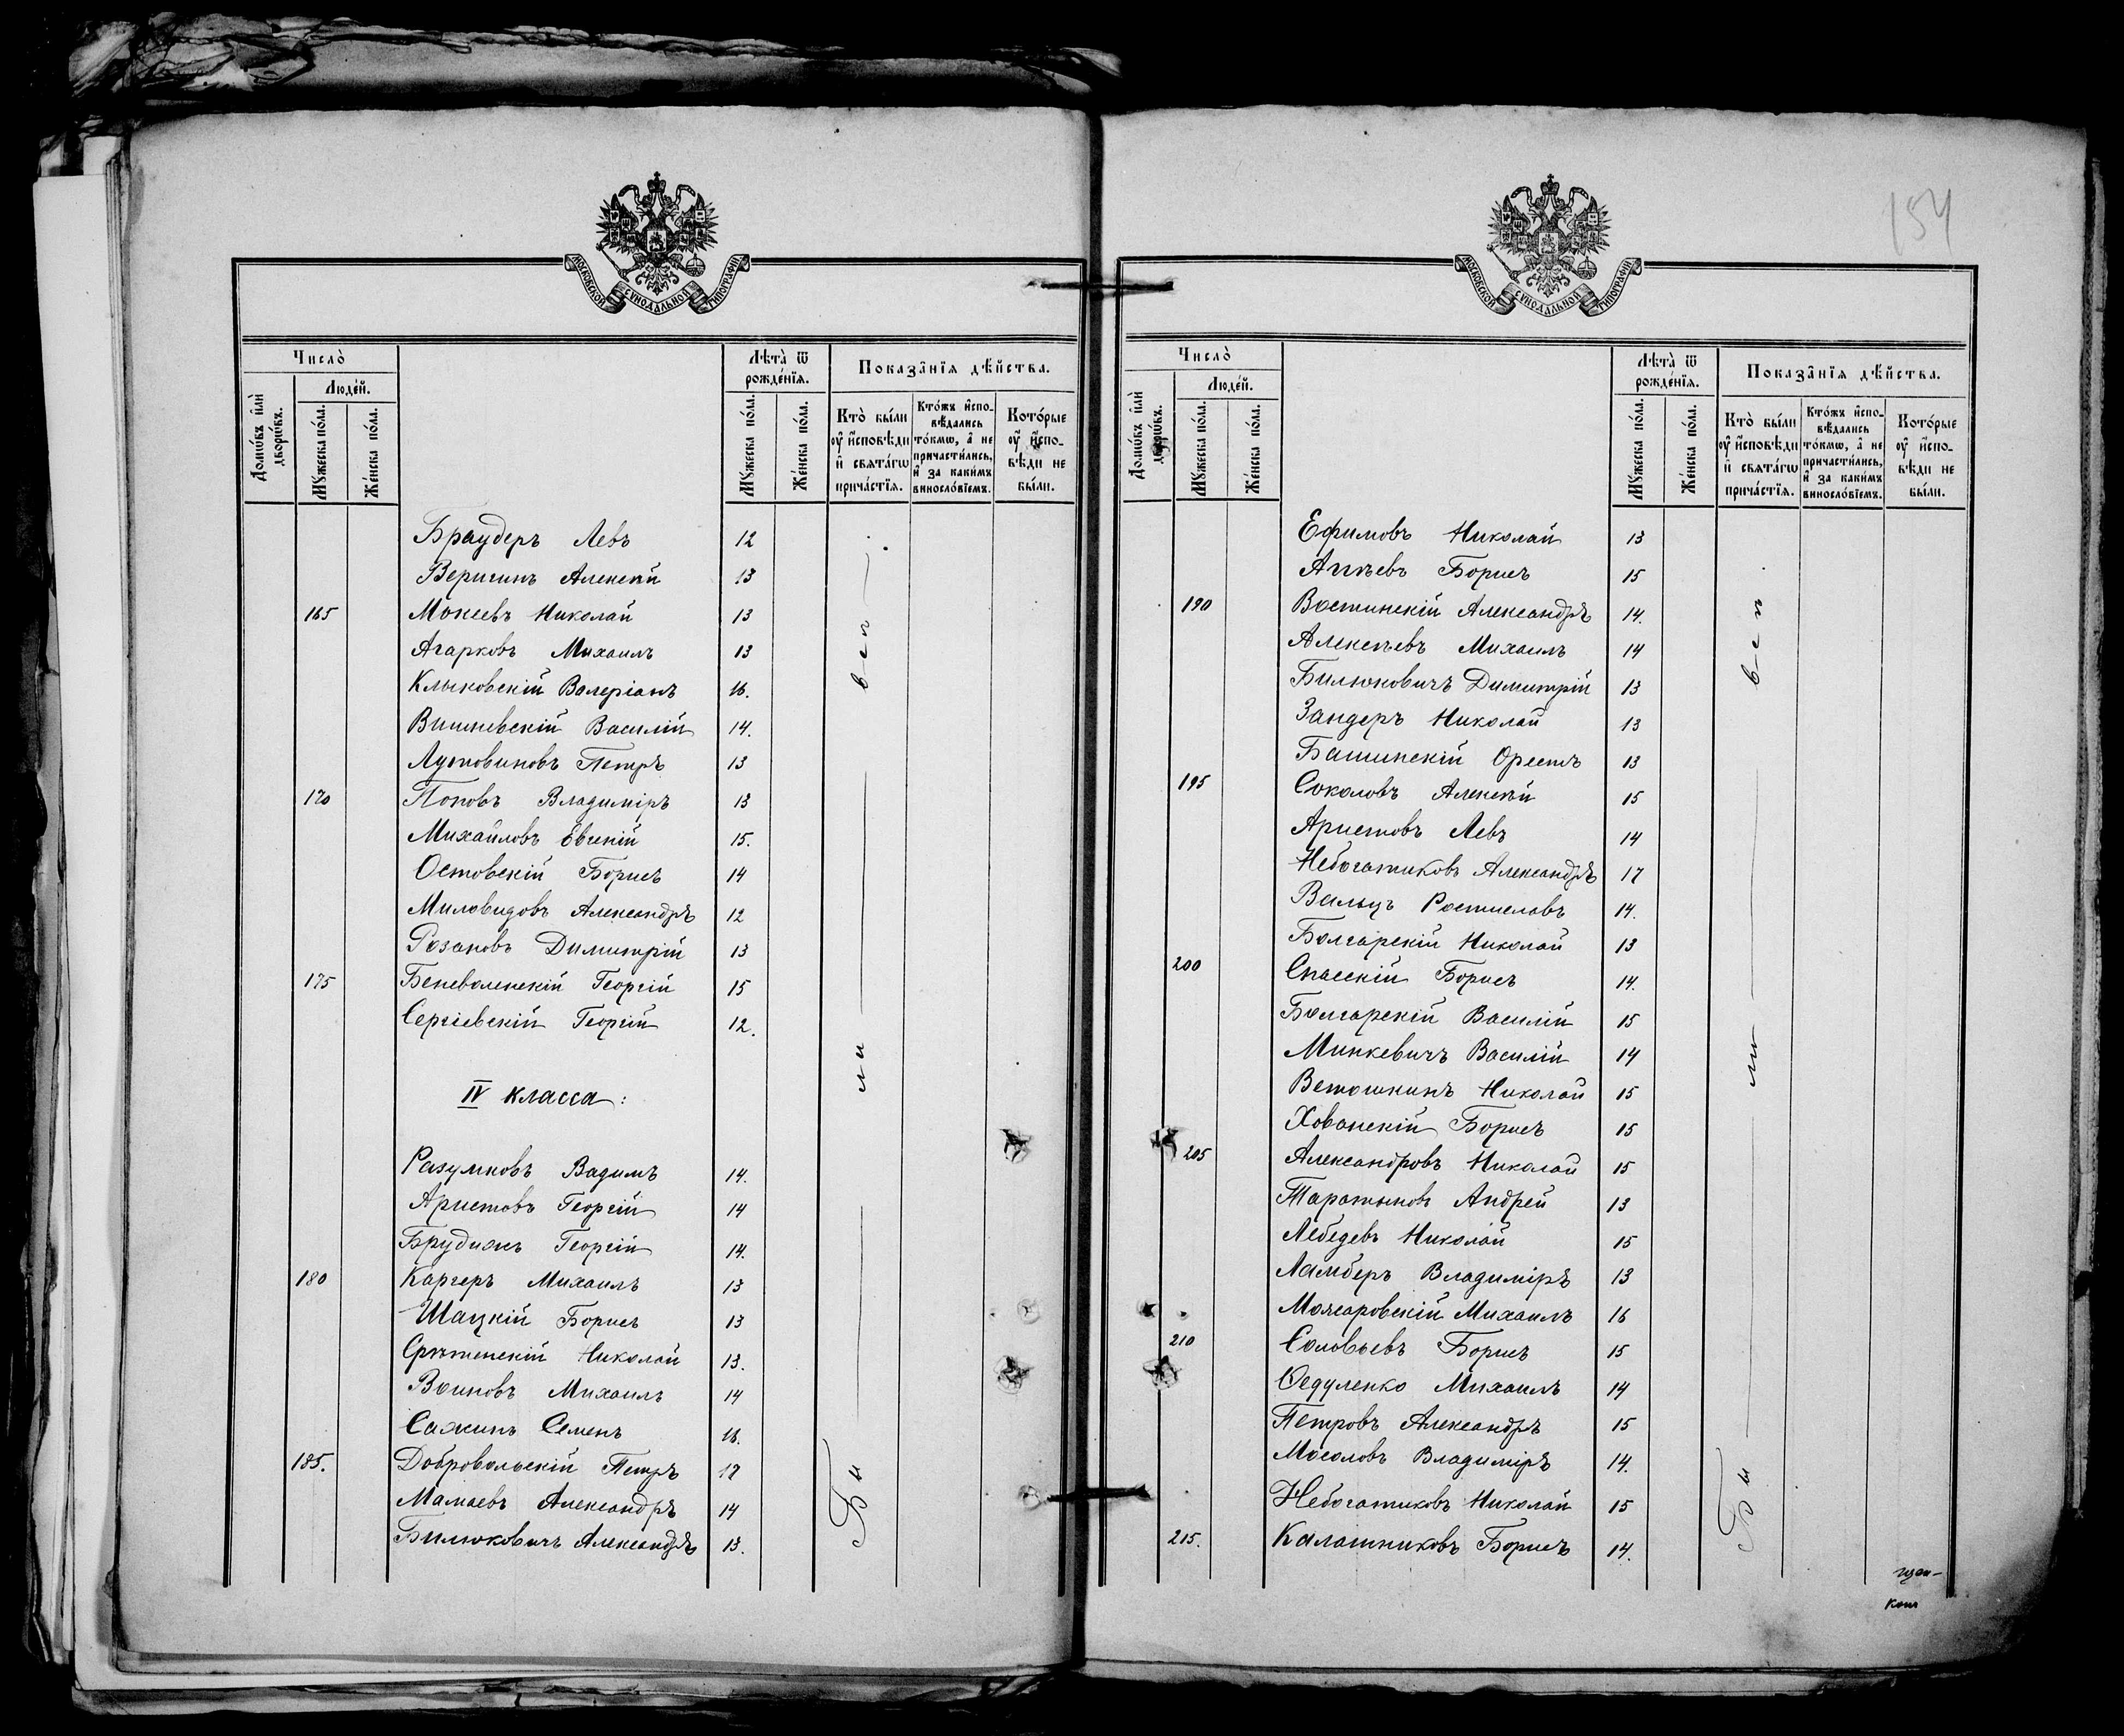 МОСКОВСКОЙ СУНОДАЛЬНОЙ ТИПОГРАФІИ
Число̀
Людей.
Домѡвъ и҆лѝ дворѡвъ.
Мꙋжеска пола.
Женска пола.
Лѣта̀ ѿ рожденїѧ.
Мꙋжеска пола.
Женска пола.
Показанїѧ дѣйства.
Кто̀ были ᲂу҆ и҆сповѣди и҆ свѧтагѡ причастїѧ.
Ктожъ и҆сповѣдались токмѡ, а҆ не причастились, и҆ за какимъ винословїемъ.
Которые ᲂу҆ и҆сповѣди не были.
Браудеръ Левъ 12
Веригинъ Алексѣй 13
165 Мокеевъ Николай 13
Агарковъ Михаилъ 13
Клыковскій Валеріанъ 16.
Вишневскій Василій 14.
Лутовиновъ Петръ 13
170 Поповъ Владиміръ 13
Михайловъ Евгеній 15.
Остовскій Борисъ 14
Миловидовъ Александръ 12
Розановъ Димитрій 13
175 Беневоленскій Георгій 15
Сергіевскій Георгій 12.
IV класса:
Разумновъ Вадимъ 14.
Аристовъ Георгій 14
Георгій 14.
180 Каргеръ Михаилъ 13
Шацкій Борисъ 13
Срѣтенскій Николай 13.
Воиновъ Михаилъ 14
Сажинъ Семенъ 16.
185. Добровольскій Петръ 17
Мамаевъ Александръ 14
Билюковичъ Александръ 13.
Бы ли всѣ.
154
МОСКОВСКОЙ СУНОДАЛЬНОЙ ТИПОГРАФІИ
Число̀
Людей.
Домѡвъ и҆лѝ дворѡвъ.
Мꙋжеска пола.
Женска пола.
Лѣта̀ ѿ рожденїѧ.
Мꙋжеска пола.
Женска пола.
Показанїѧ дѣйства.
Кто̀ были ᲂу҆ и҆сповѣди и҆ свѧтагѡ причастїѧ.
Ктожъ и҆сповѣдались токмѡ, а҆ не причастились, и҆ за какимъ винословїемъ.
Которые ᲂу҆ и҆сповѣди не были.
Ефимовъ Николай 13
Борисъ 15
190 Востинскій Александръ 14.
Алексѣевъ Михаилъ 14
Билюковичъ Димитрій 13
Зандеръ Николай 13
Башинскій Орестъ 13
195 Соколовъ Алексѣй 15
Аристовъ Левъ 14
Небогатиковъ Александръ 17
Вальцъ Ростиславъ 14.
Болгарскій Николай 13
200 Спасскій Борисъ 14.
Болгарскій Василій 15
Минкевичъ Василій 14
Ветошкинъ Николай 15
Хованскій Борисъ 15
205 Александровъ Николай 15
Таратыновъ Андрей 13
Лебедевъ Николай 15
Ламберъ Владиміръ 13
Можаровскій Михаилъ 16
210 Соловьевъ Борисъ 15
Ѳедуленко Михаилъ 14
Петровъ Александръ 15
Мосоловъ Владиміръ 14.
Небогатиковъ Николай 15
215. Калашниковъ Борисъ 14.
Бы ли всѣ.